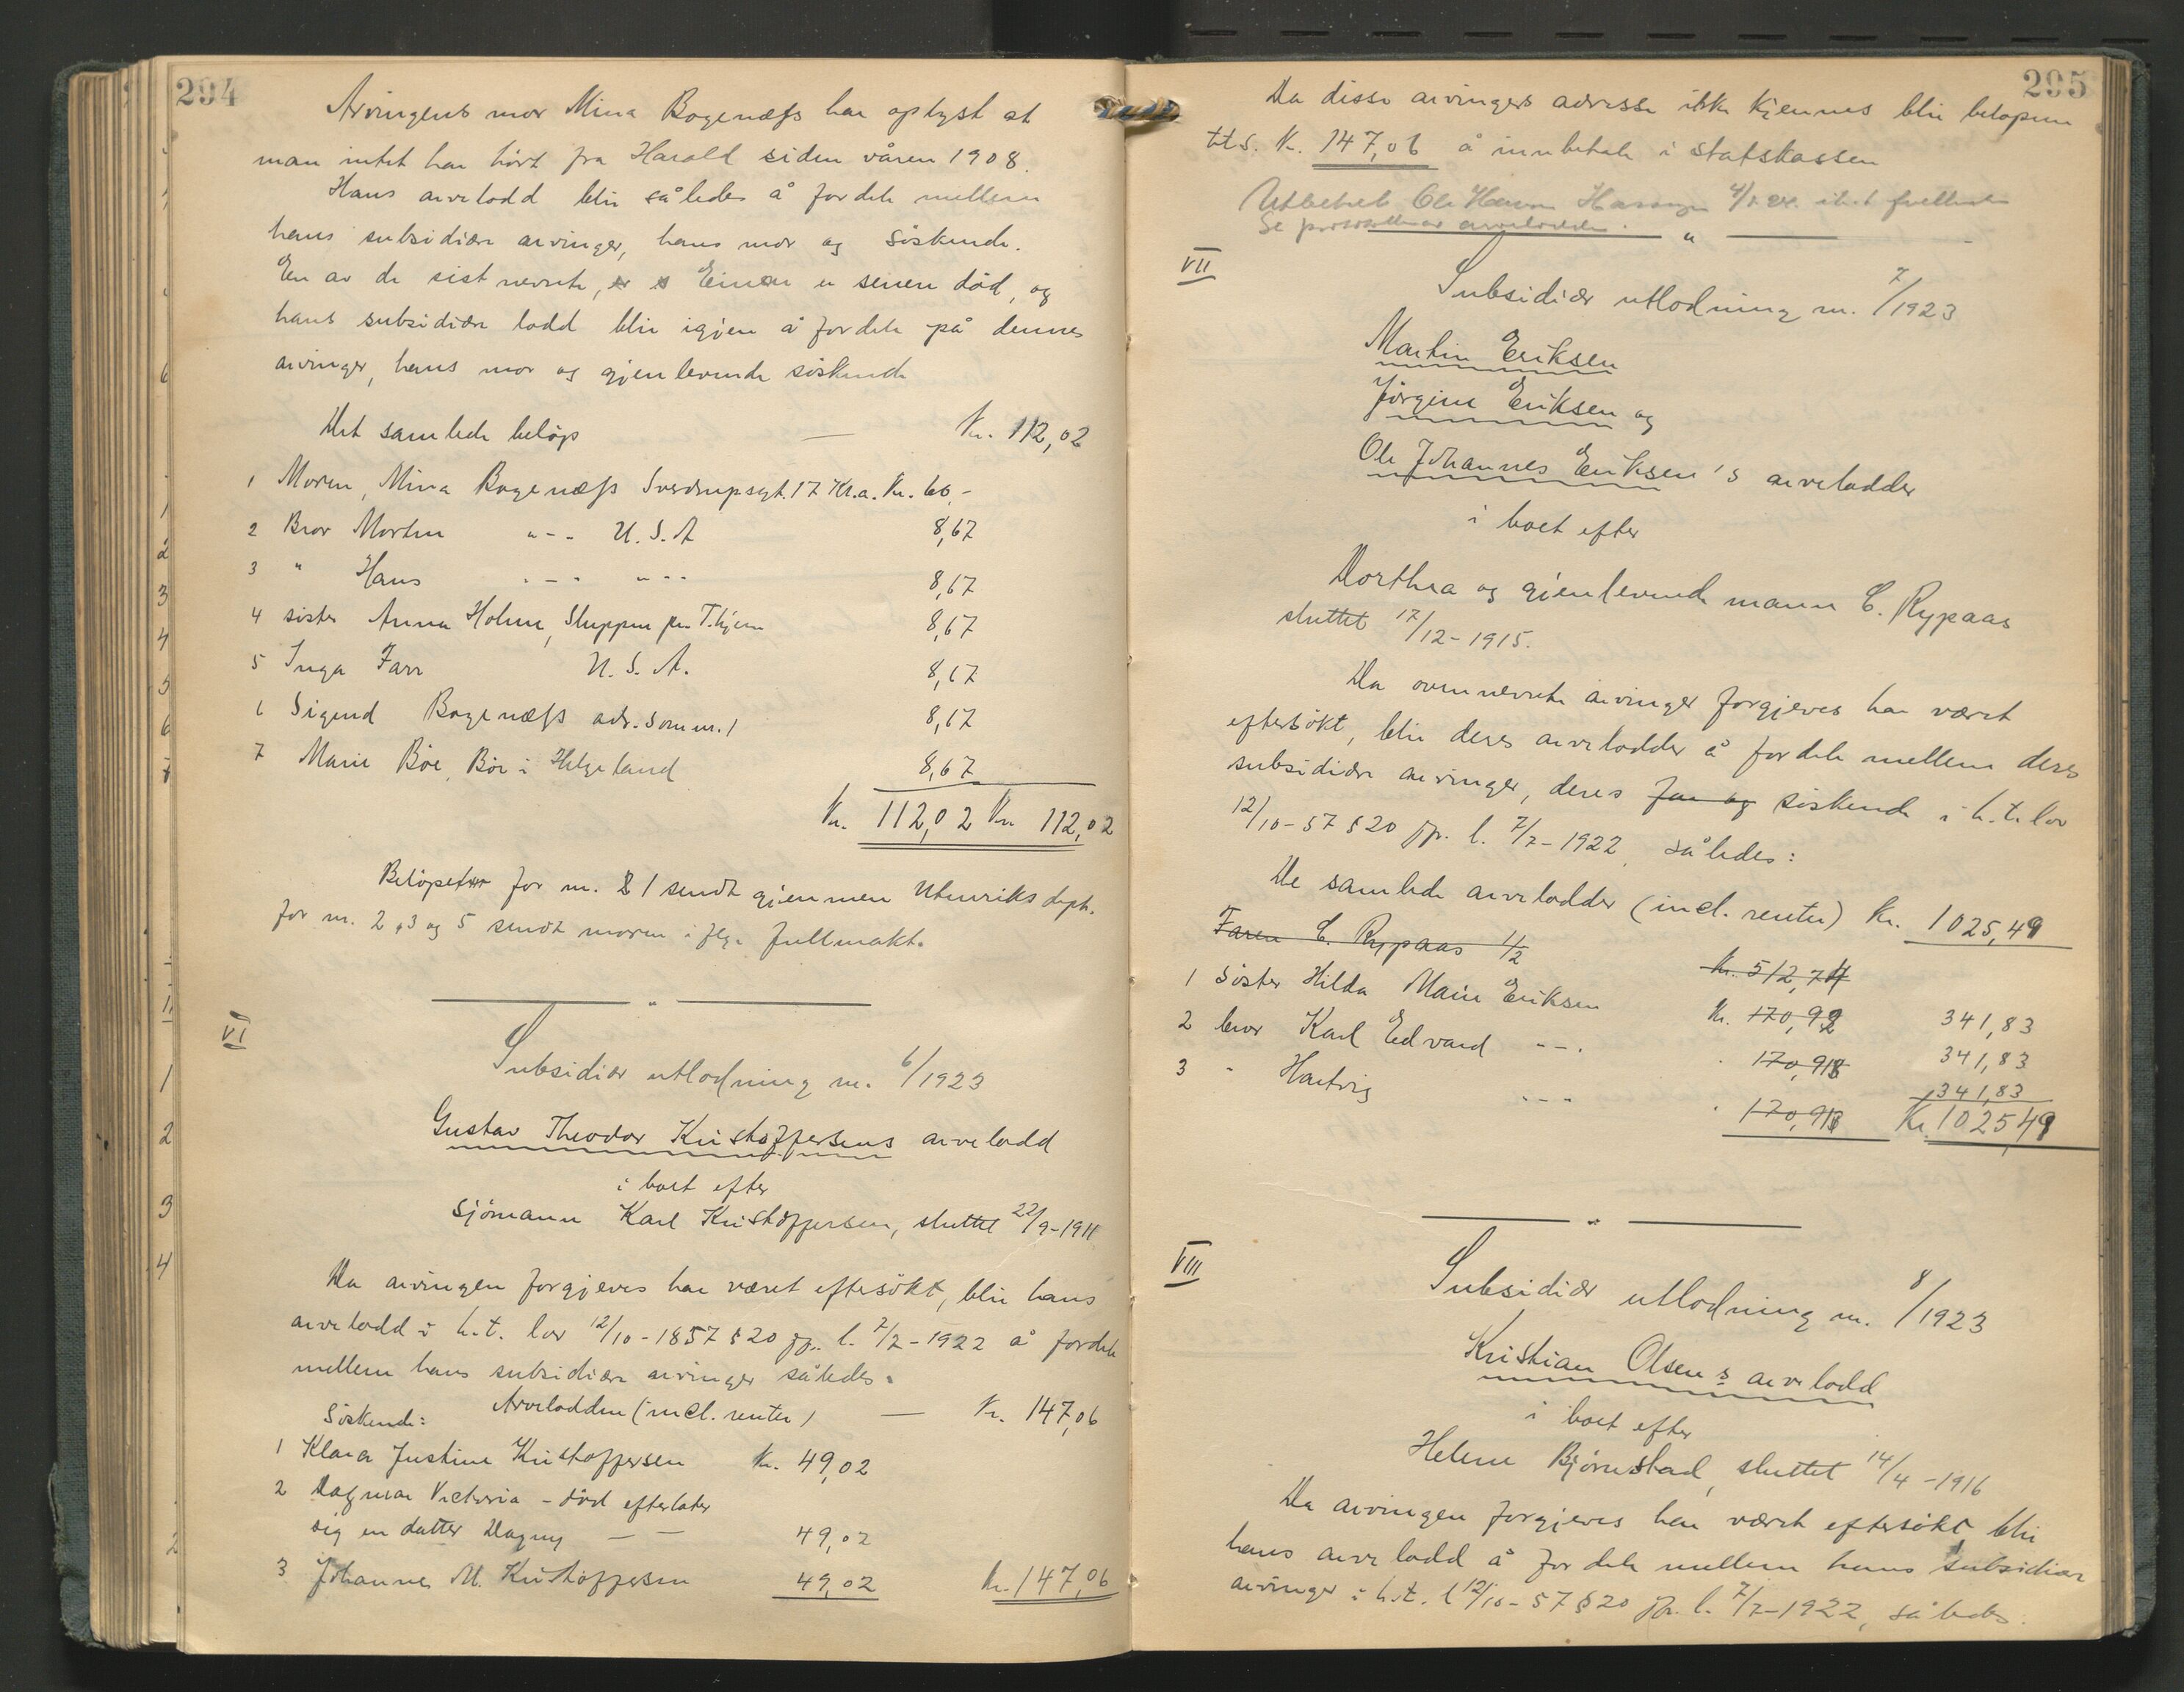 294
Arvingens mor Mina Bogenæss har oplyst at
man intet har hørt fra Harald siden våren 1908.
Hans arvelodd blir således å fordele mellem
hans subsidiære arvinger, hans mor og søskende.
En av de sist nevnte, Einar er senere død, og
hans subsidiære lodd blir igjen å fordele på dennes
arvinger, hans mor og gjenlevende søskende
Det samlede beløp — Kr. 112,02
1 Moren, Mina Bogenæss Sverdrupsgt. 17 Kr.a. Kr. 60,-
2 Bror Morten " - - U.S.A 8,67
3 " Hans " - " " - - 8,67
4 søster Anna Holm, Sluppen pr T.hjem 8,67
5 Inga Farr U.S.A. 8,67
6 Sigurd Bogenæss adr. som nr. 1 8,67
7 Marie Bøe, Bø i Helgeland 8,67
Kr. 112,02 Kr. 112,02
Beløpet for nr. 1 sendt gjennem Utenriksdept.
for nr. 2, 3 og 5 sendt moren i flg. fullmakt.
VI
Subsidiær utlodning nr. 6/1923
Gustav Theodor Kristoffersens arvelodd
i boet efter
sjømann Karl Kristoffersen, sluttet 22/9-1911
Da arvingen forgjeves har været eftersøkt, blir hans
arvelodd i h.t. lov 12/10-1857 § 20 jfr. l. 7/7-1922 å fordele
mellem hans subsidiære arvinger således.
Arvelodden (incl. renter) — Kr. 147,06
Søskende:
1 Klara Justine Kristoffersen Kr. 49,02
2 Dagmar Victoria - død efterlater
sig en datter Dagny — — 49,02
3 Johannes M. Kristoffersen 49,02 Kr. 147,06
295
Da disse arvingers adresse ikke kjennes blir beløpene
tils. Kr. 147,06 å innbetale i statskassen
Utbetalt Ole
Se
VII
Subsidiær utlodning nr. 7/1923
Martin Eriksen
Jørgine Eriksen og
Ole Johannes Eriksen's arvelodder
i boet efter
Dorthea og gjenlevende mann C. Rypaas
sluttet 17/12-1915.
Da ovennevnte arvinger forgjeves har været
eftersøkt, blir deres arvelodder å fordele mellem deres
subsidiære arvinger, deres far og søskende i h.t. lov
12/10-57 § 20 jfr. l. 7/7-1922, således:
De samlede arvelodder (incl. renter) Kr. 1025,49
Faren C. Rypaas 1/2 Kr. 512,74
1 søster Hilda Marie Eriksen Kr. 170,92 341,83
2 bror Karl Edvard - - . 170,91 341,83
3 " Hartvig - - - 170,91 341,83
Kr. 1025,49
VIII
Subsidiær utlodning nr. 8/1923
Kristian Olsens arvelodd
i boet efter
Helene Bjørnstad, sluttet 14/4-1916
Da arvingen forgjeves har været eftersøkt blir
hans arvelodd å fordele mellem hans subsidiære
arvinger i h.t. l 12/10-57 § 20 jfr. l. 7/7-1922, således.